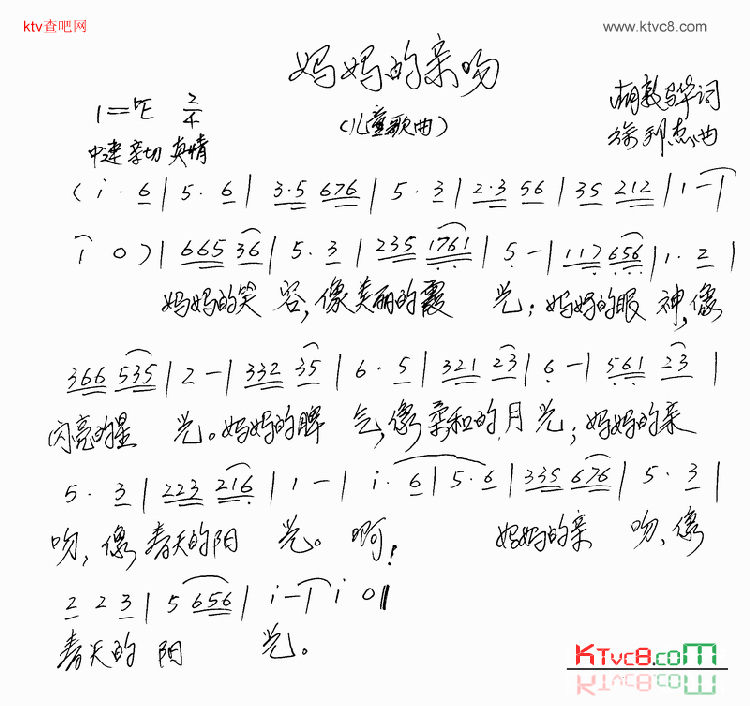 ktv查吧网
www.ktvc8.com
妈妈的亲吻
(儿童歌曲)
1=♭E 2/4
中速 亲切 真情
胡敦骅词
徐邦杰曲
(i· 6 | 5· 6 | 3·5 676 | 5· 3 | 2·3 56 | 35 212 | 1 - |
i 0) | 665 36 | 5· 3 | 235 1761 | 5 - | 117 656 | 1· 2 |
妈妈的笑容,像美丽的霞光;妈妈的眼神,像
366 535 | 2 - | 332 35 | 6· 5 | 321 23 | 6 - | 561 23 |
闪亮的星光。妈妈的脾气,像柔和的月光;妈妈的亲
5· 3 | 223 216 | 1 - | i· 6 | 5·6 | 335 676 | 5· 3 |
吻,像春天的阳光。啊!妈妈的亲吻,像
2 2 3 | 5 656 | i - | i 0 ‖
春天的阳光。
KTvc8.com